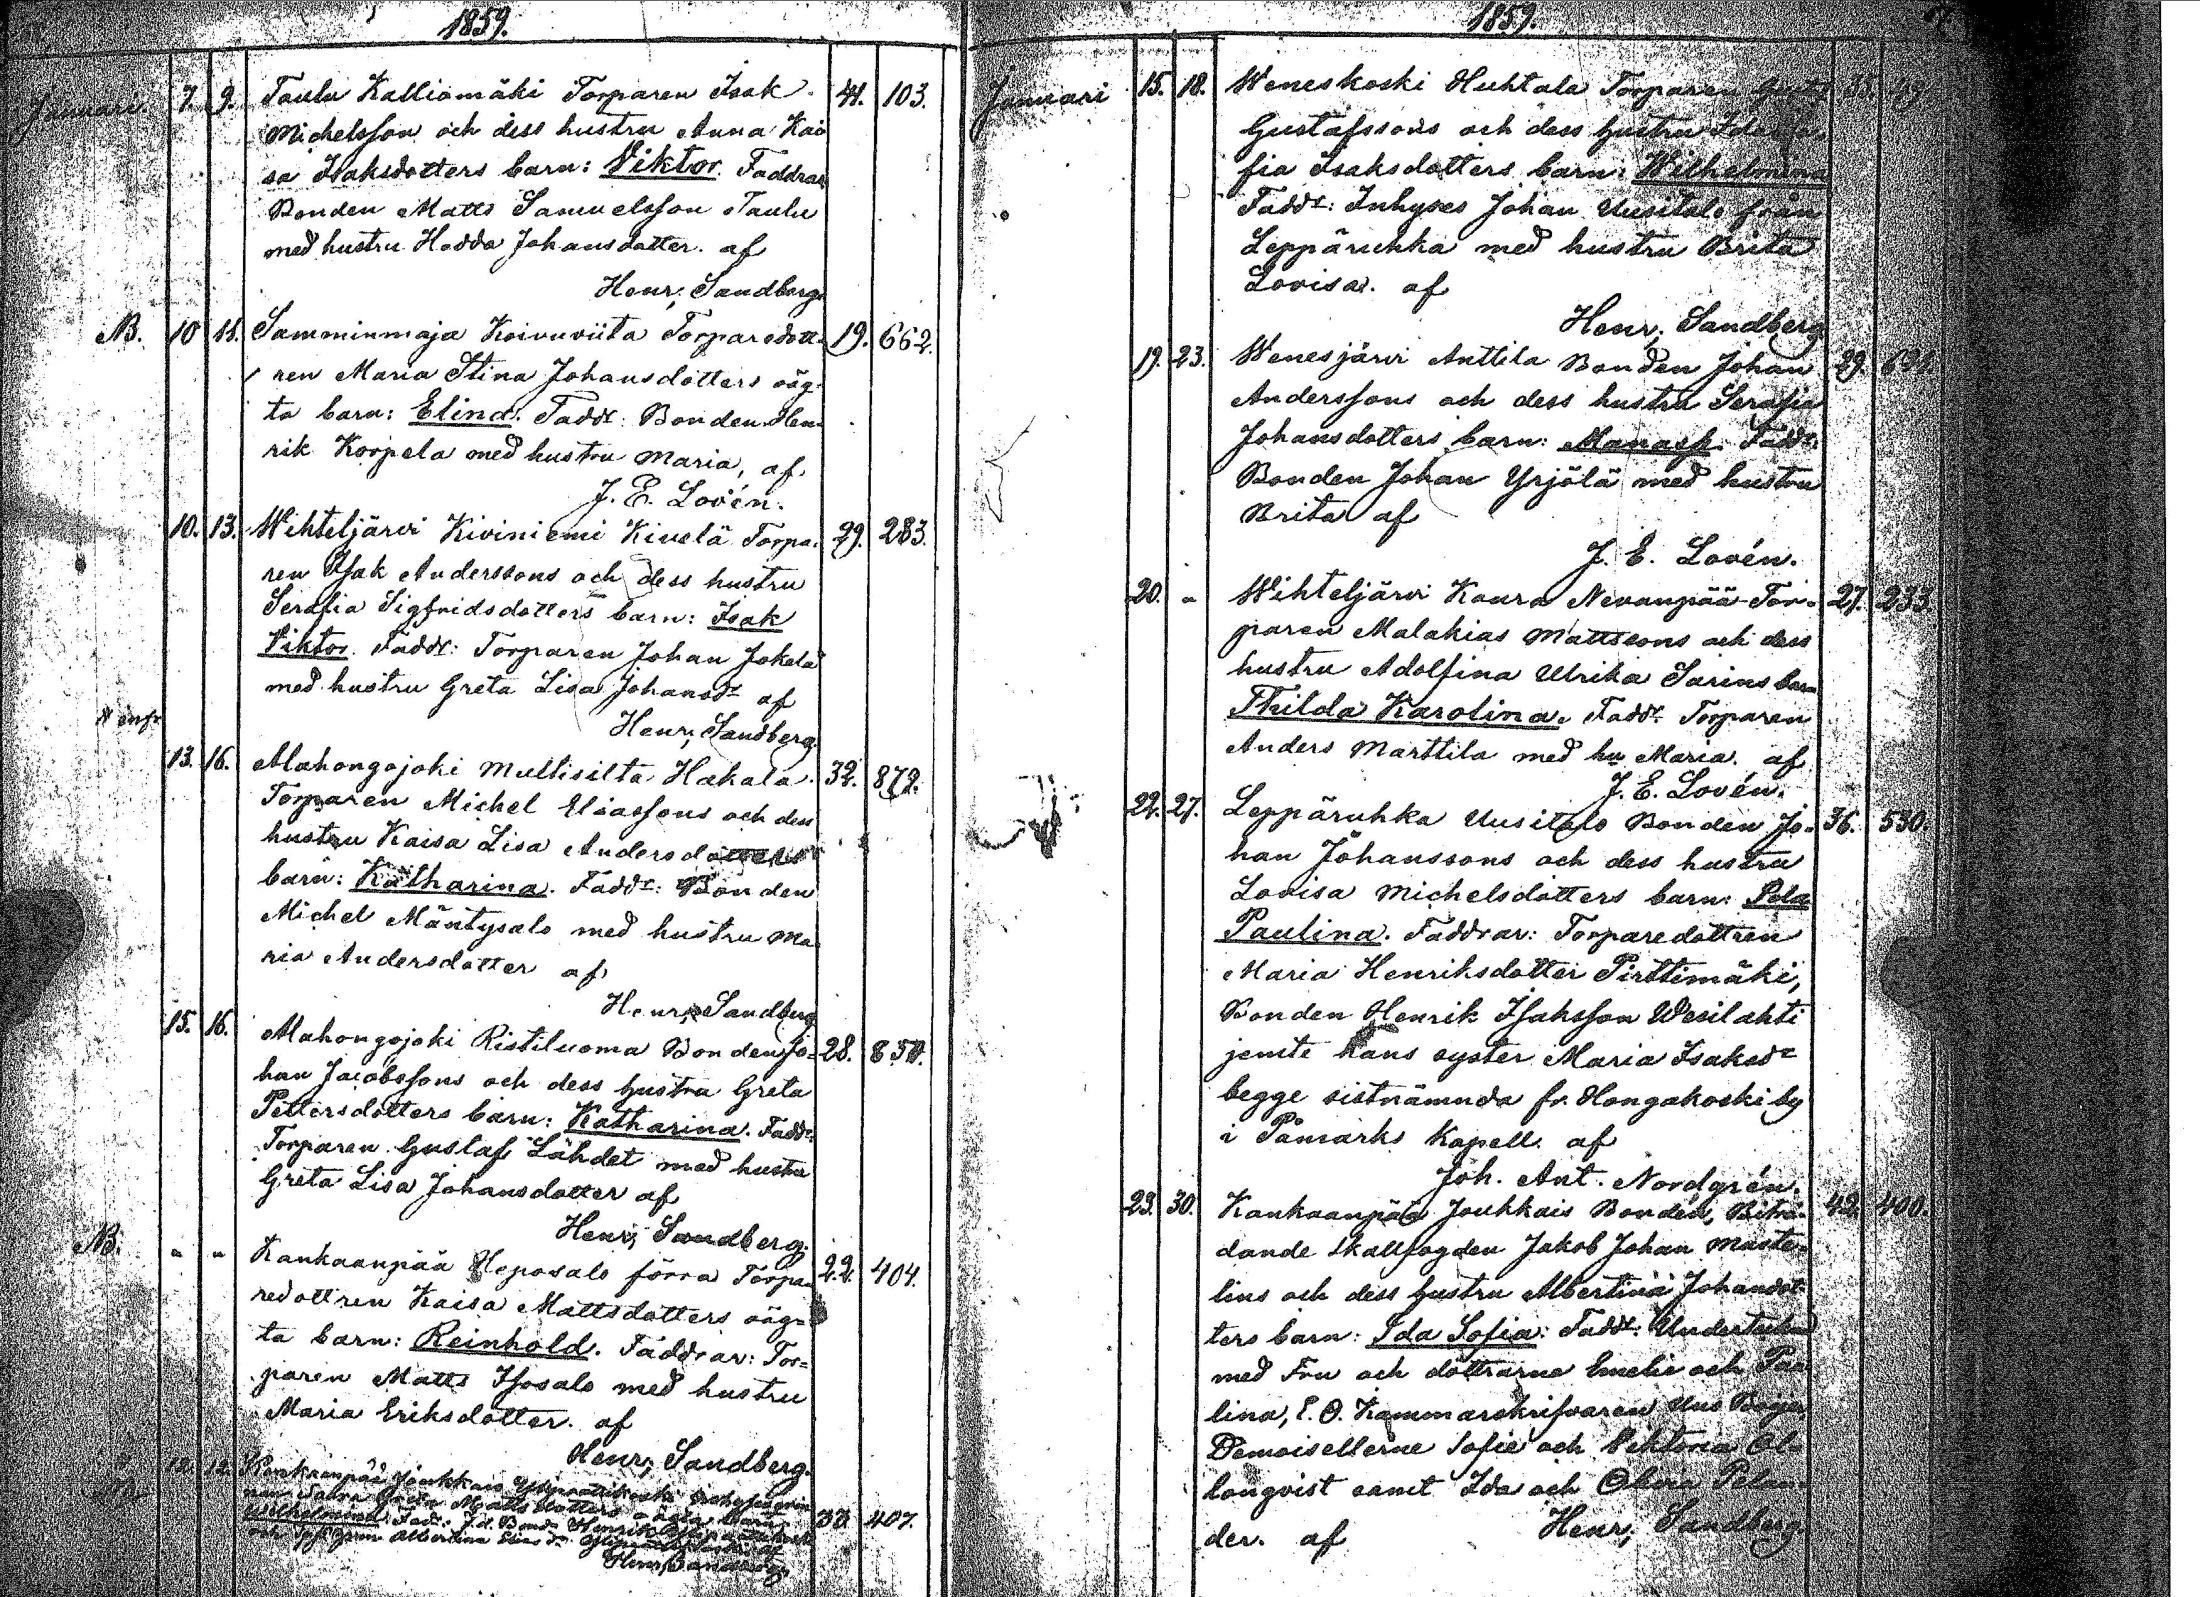 1859.
Januari. 7. 9. Taulu Kalliomäki Torparen Isak 41. 103.
Michelsson och dess hustru Anna Kai
sa Isaksdotters barn: Viktor. Faddrar
Bonden Matts Samuelsson Taulu
med hustru Hedda Johansdotter. af
Henr. Sandberg.
NB. 10 11. Samminmaja Koivuviita Torparedott- 19. 662.
ren Maria Stina Johansdotters oäg-
ta barn: Elina. Fadd: Bonden Hen-
rik Korpela med hustru Maria, af
J. E. Lovén.
10. 13. Wihteljärvi Kiviniemi Kivelä Torpa- 29. 283.
ren Isak Anderssons och dess hustru
Serafia Sigfridsdotters barn: Isak
Viktor. Fadd: Torparen Johan Jokela
med hustru Greta Lisa Johansdr af
Henr. Sandberg.
13. 16. Mahongojoki Multisilta Hakala 32. 872.
Torparen Michel Eliassons och dess
hustru Kaisa Lisa Andersdotters
barn: Katharina. Fadd: Bonden
Michel Mäntysalo med hustru Ma
ria Andersdotter af
Henr. Sandberg
15. 16. Mahongojoki Ristiluoma Bonden Jo- 28.
han Jacobssons och dess hustru Greta
Pettersdotters barn: Katharina. Fadd:
Torparen Gustaf Lähdet med hustru
Greta Lisa Johansdotter af
Henr. Sandberg.
NB. " " Kankaanpää Heposalo förra Torpa- 22. 404.
redottren Kaisa Mattsdotters oäg-
ta barn: Reinhold. Faddrar: Tor-
paren Matts Isosalo med hustru
Maria Eriksdotter. af
Henr. Sandberg.
12. 12. Kankaanpää Joukkais
Mattsdotters oägta barn
Wilhelmina. Fadd: Bond. Henrik 33. 407.
och Albertina
Henr. Sandberg.
1859.
Januari 15. 18. Weneskoski Huhtala Torparen Gust. 35.
Gustafssons och dess hustru Ida
fia Isaksdotters barn: Wilhelmina
Fadd: Inhyses Johan Uusitalo från
Leppäruhka med hustru Brita
Lovisa. af
Henr. Sandberg
19. 23. Wenesjärvi Anttila Bonden Johan 29.
Anderssons och dess hustru Serafia
Johansdotters barn: Manasse. Fadd:
Bonden Johan Yrjölä med hustru
Brita af
J. E. Lovén.
20. " Wihteljärvi Koura Nevanpää Tor- 27. 233.
paren Malakias Mattssons och dess
hustru Adolfina Ulrika Sarins barn
Thilda Karolina. Fadd: Torparen
Anders Marttila med hu Maria. af
J. E. Lovén.
22. 27. Leppäruhka Uusitalo Bonden Jo- 36. 530.
han Johanssons och dess hustru
Lovisa Michelsdotters barn:
Paulina. Faddrar: Torparedottren
Maria Henriksdotter Pirttimäki,
Bonden Henrik Isaksson Wesilahti
jemte hans syster Maria Isaksdr
begge sistnämnda fr. Hongakoski by
i Påmarks Kapell. af
Joh. Ant. Nordgrén.
23. 30. Kankaanpää Joukkais Bonden, Biträ- 42. 400.
dande skallfogden Jakob Johan Maste-
lins och dess hustru Albertina Johansdot-
ters barn: Ida Sofia: Fadd:
med Fru och döttrarne Emelie och Pau
lina, E. O. Kammarskrifvaren Uno
Demoisellerne Sofie och Viktoria Ol-
lonqvist samt Ida och
der. af Henr. Sandberg.